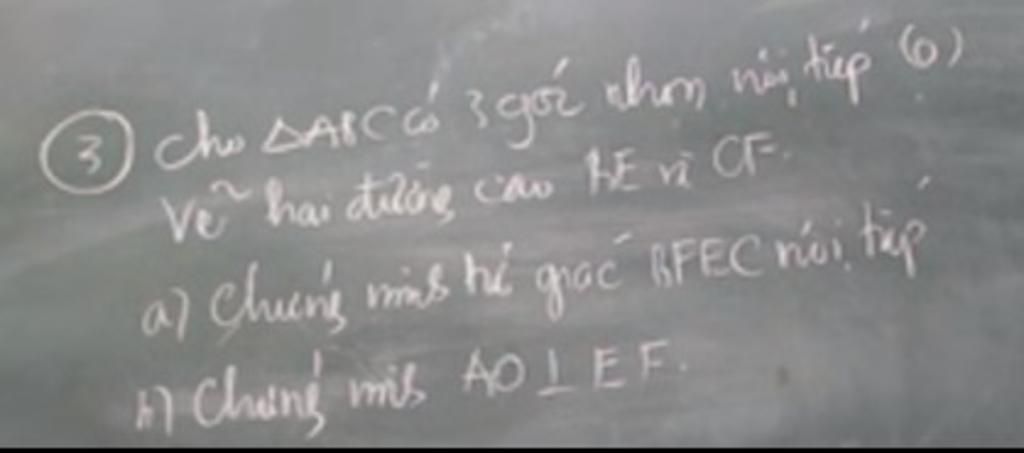 ③ Cho ΔABC có 3 góc nhọn nội tiếp (O)
Vẽ hai đường cao BE và CF.
a) Chứng minh tứ giác BFEC nội tiếp
b) Chứng minh AO ⊥ EF.